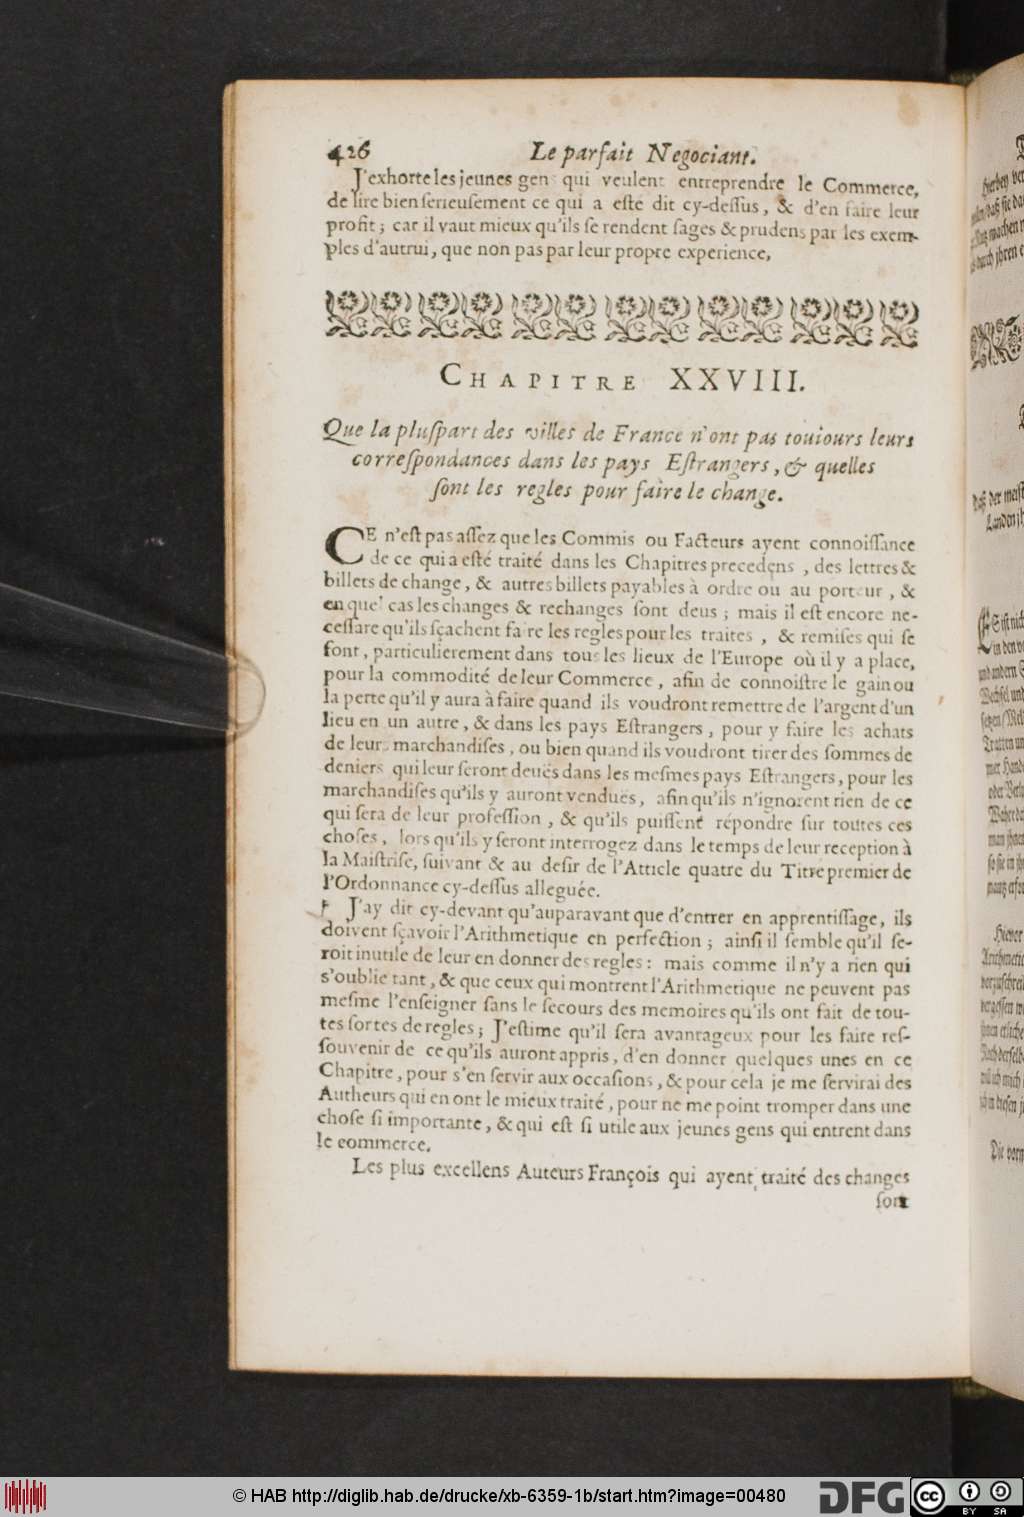 426 Le parfait Negociant.
J'exhorte les jeunes gens qui veulent entreprendre le Commerce,
de lire bien serieusement ce qui a esté dit cy-dessus, & d'en faire leur
profit; car il vaut mieux qu'ils se rendent sages & prudens par les exem-
ples d'autrui, que non pas par leur propre experience.
CHAPITRE XXVIII.
Que la pluſpart des villes de France n'ont pas touiours leurs
correſpondances dans les pays Eſtrangers, & quelles
ſont les regles pour faire le change.
CE n'eſt pas aſſez que les Commis ou Facteurs ayent connoiſſance
de ce qui a eſté traité dans les Chapitres precedens, des lettres &
billets de change, & autres billets payables à ordre ou au porteur, &
en quel cas les changes & rechanges ſont deus; mais il eſt encore ne-
ceſſare qu'ils ſçachent faire les regles pour les traites, & remiſes qui ſe
font, particulierement dans tous les lieux de l'Europe où il y a place,
pour la commodité de leur Commerce, afin de connoiſtre le gain ou
la perte qu'il y aura à faire quand ils voudront remettre de l'argent d'un
lieu en un autre, & dans les pays Eſtrangers, pour y faire les achats
de leurs marchandiſes, ou bien quand ils voudront tirer des ſommes de
deniers qui leur ſeront deuës dans les meſmes pays Eſtrangers, pour les
marchandiſes qu'ils y auront venduës, afin qu'ils n'ignorent rien de ce
qui ſera de leur profeſſion, & qu'ils puiſſent répondre ſur toutes ces
choſes, lors qu'ils y ſeront interrogez dans le temps de leur reception à
la Maiſtriſe, ſuivant & au deſir de l'Atticle quatre du Titre premier de
l'Ordonnance cy-deſſus alleguée.
J'ay dit cy-devant qu'auparavant que d'entrer en apprentiſſage, ils
doivent ſçavoir l'Arithmetique en perfection; ainſi il ſemble qu'il ſe-
roit inutile de leur en donner des regles: mais comme il n'y a rien qui
s'oublie tant, & que ceux qui montrent l'Arithmetique ne peuvent pas
meſme l'enſeigner ſans le ſecours des memoires qu'ils ont fait de tou-
tes ſortes de regles; J'eſtime qu'il ſera avantageux pour les faire reſ-
ſouvenir de ce qu'ils auront appris, d'en donner quelques unes en ce
Chapitre, pour s'en ſervir aux occaſions, & pour cela je me ſervirai des
Autheurs qui en ont le mieux traité, pour ne me point tromper dans une
choſe ſi importante, & qui eſt ſi utile aux jeunes gens qui entrent dans
le commerce.
Les plus excellens Auteurs François qui ayent traité des changes
ſont
© HAB http://diglib.hab.de/drucke/xb-6359-1b/start.htm?image=00480
DFG
cc BY SA